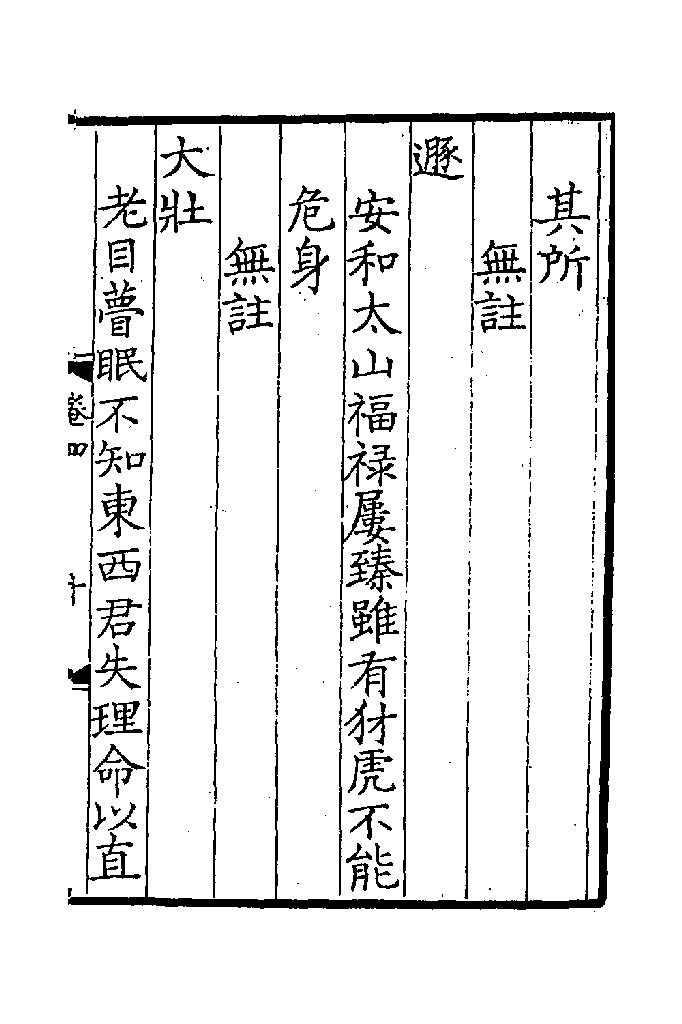 其所
無註
遯
安和太山福禄屢臻雖有犲虎不能
危身
無註
大壯
老目瞢眠不知東西君失理命以直
卷四
十